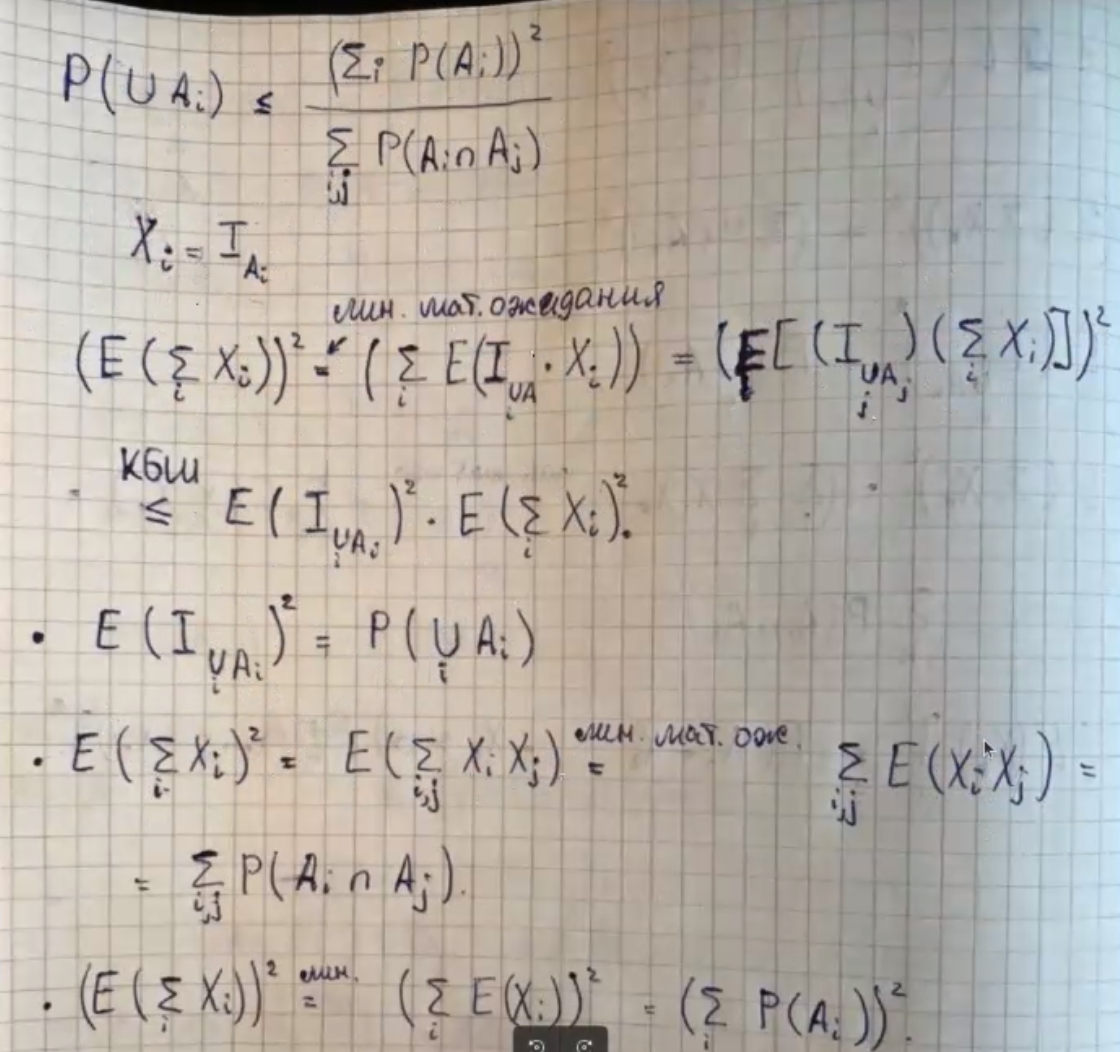 P(∪ A_i) ≤ (Σ_i P(A_i))² / Σ_{i,j} P(A_i ∩ A_j)
X_i = I_{A_i}
лин. мат. ожидания
(E(Σ_i X_i))² = (Σ_i E(I_{∪_i A} · X_i)) = (E[(I_{∪_j A_j})(Σ_i X_i)])²
КБШ
≤ E(I_{∪_i A_i})² · E(Σ_i X_i)².
• E(I_{∪_i A_i})² = P(∪_i A_i)
• E(Σ_i X_i)² = E(Σ_{i,j} X_i X_j) лин. мат. ож. = Σ_{i,j} E(X_i X_j) =
= Σ_{i,j} P(A_i ∩ A_j).
• (E(Σ_i X_i))² лин. = (Σ_i E(X_i))² = (Σ_i P(A_i))².